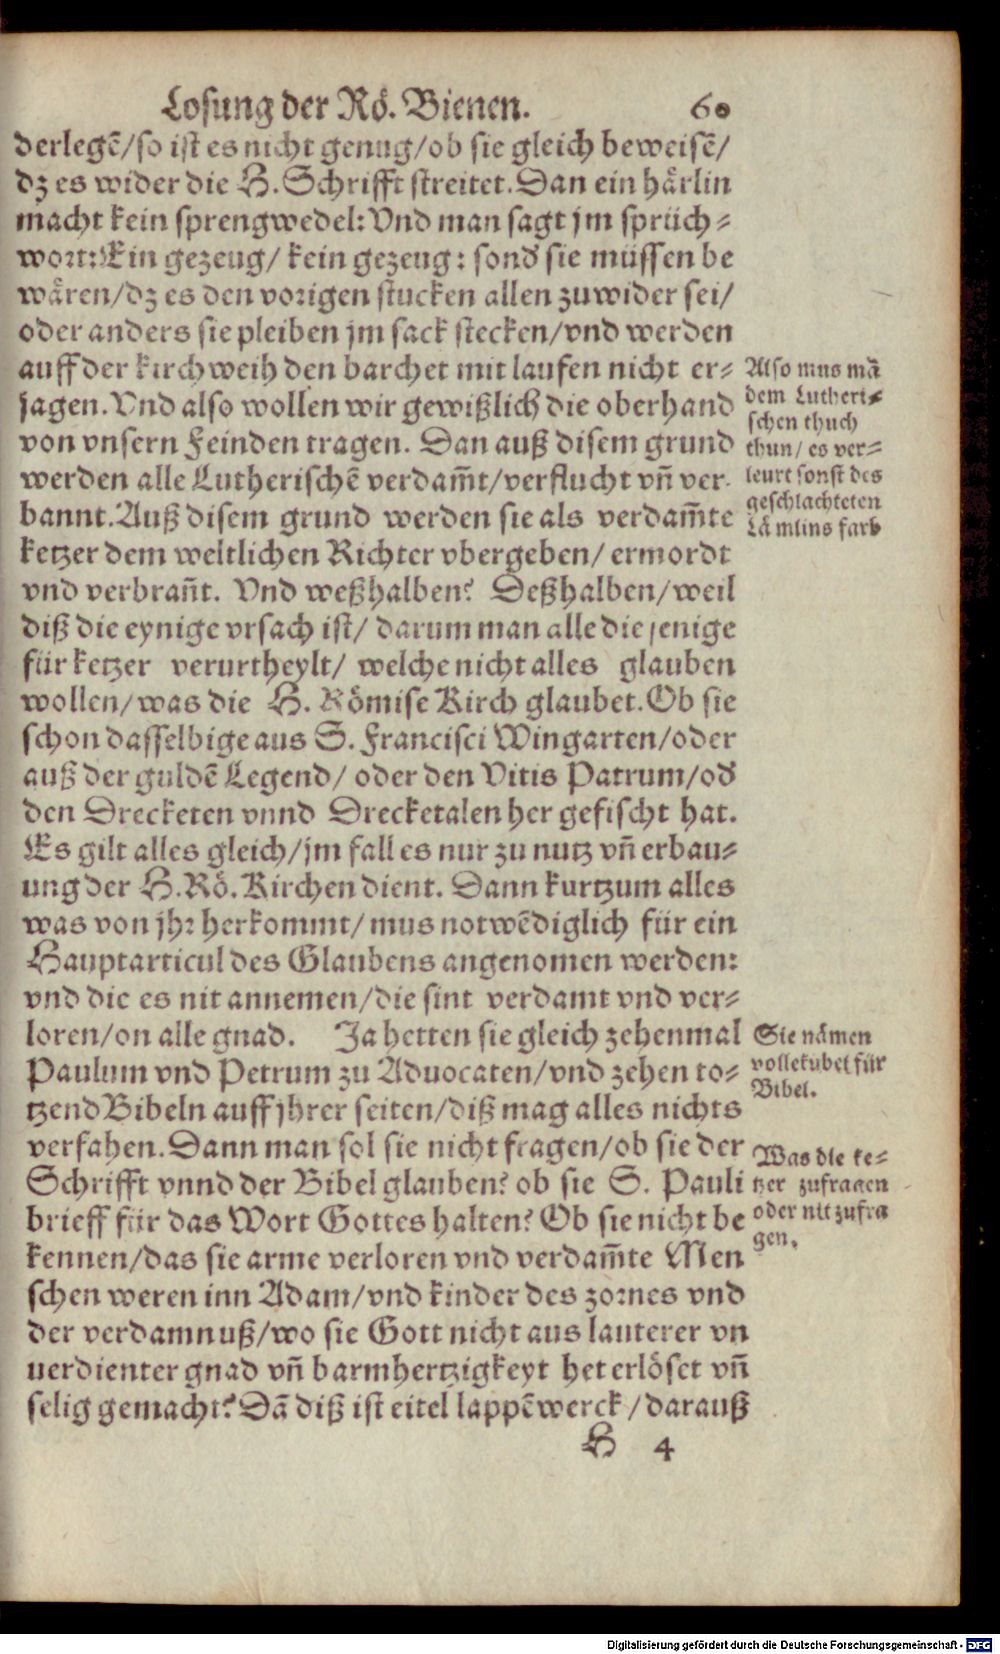 Losung der Rö. Bienen. 60
derlegẽ/so ist es nicht genug/ob sie gleich beweisẽ/
dz es wider die H. Schrifft streitet. Dan ein härlin
macht kein sprengwedel: Vnd man sagt jm sprüch-
wort: Ein gezeug/ kein gezeug: sond' sie müssen be
wären/dz es den vorigen stucken allen zuwider sei/
oder anders sie pleiben jm sack stecken/vnd werden
auff der kirchweih den barchet mit laufen nicht er-
jagen. Vnd also wollen wir gewißlich die oberhand
von vnsern Feinden tragen. Dan auß disem grund
werden alle Lutherischẽ verdam̃t/verflucht vñ ver-
bannt. Auß disem grund werden sie als verdam̃te
ketzer dem weltlichen Richter vbergeben/ ermordt
vnd verbrañt. Vnd weßhalben? Deßhalben/weil
diß die eynige vrsach ist/ darum man alle die jenige
für ketzer verurtheylt/ welche nicht alles glauben
wollen/was die H. Römise Kirch glaubet. Ob sie
schon dasselbige aus S. Francisci Wingarten/oder
auß der guldẽ Legend/ oder den Vitis Patrum/od'
den Drecketen vnnd Drecketalen her gefischt hat.
Es gilt alles gleich/jm fall es nur zu nutz vñ erbau-
ung der H. Rö. Kirchen dient. Dann kurtzum alles
was von jhr herkommt/ mus notwẽdiglich für ein
Hauptarticul des Glaubens angenomen werden:
vnd die es nit annemen/die sint verdamt vnd ver-
loren/on alle gnad. Ja hetten sie gleich zehenmal
Paulum vnd Petrum zu Aduocaten/vnd zehen to-
tzend Bibeln auff jhrer seiten/diß mag alles nichts
verfahen. Dann man sol sie nicht fragen/ob sie der
Schrifft vnnd der Bibel glauben? ob sie S. Pauli
brieff für das Wort Gottes halten? Ob sie nicht be
kennen/das sie arme verloren vnd verdam̃te Men
schen weren inn Adam/vnd kinder des zornes vnd
der verdamnuß/wo sie Gott nicht aus lauterer vn
uerdienter gnad vñ barmhertzigkeyt het erlöset vñ
selig gemacht? Dã diß ist eitel lappẽwerck/darauß
H 4
Also mus mã
dem Lutheri-
schen thuch
thun/ es ver-
leurt sonst des
geschlachteten
Lämlins farb
Sie nämen
volle kubel für
Bibel.
Was die ke-
tzer zufragen
oder nit zufra
gen.
Digitalisierung gefördert durch die Deutsche Forschungsgemeinschaft - DFG